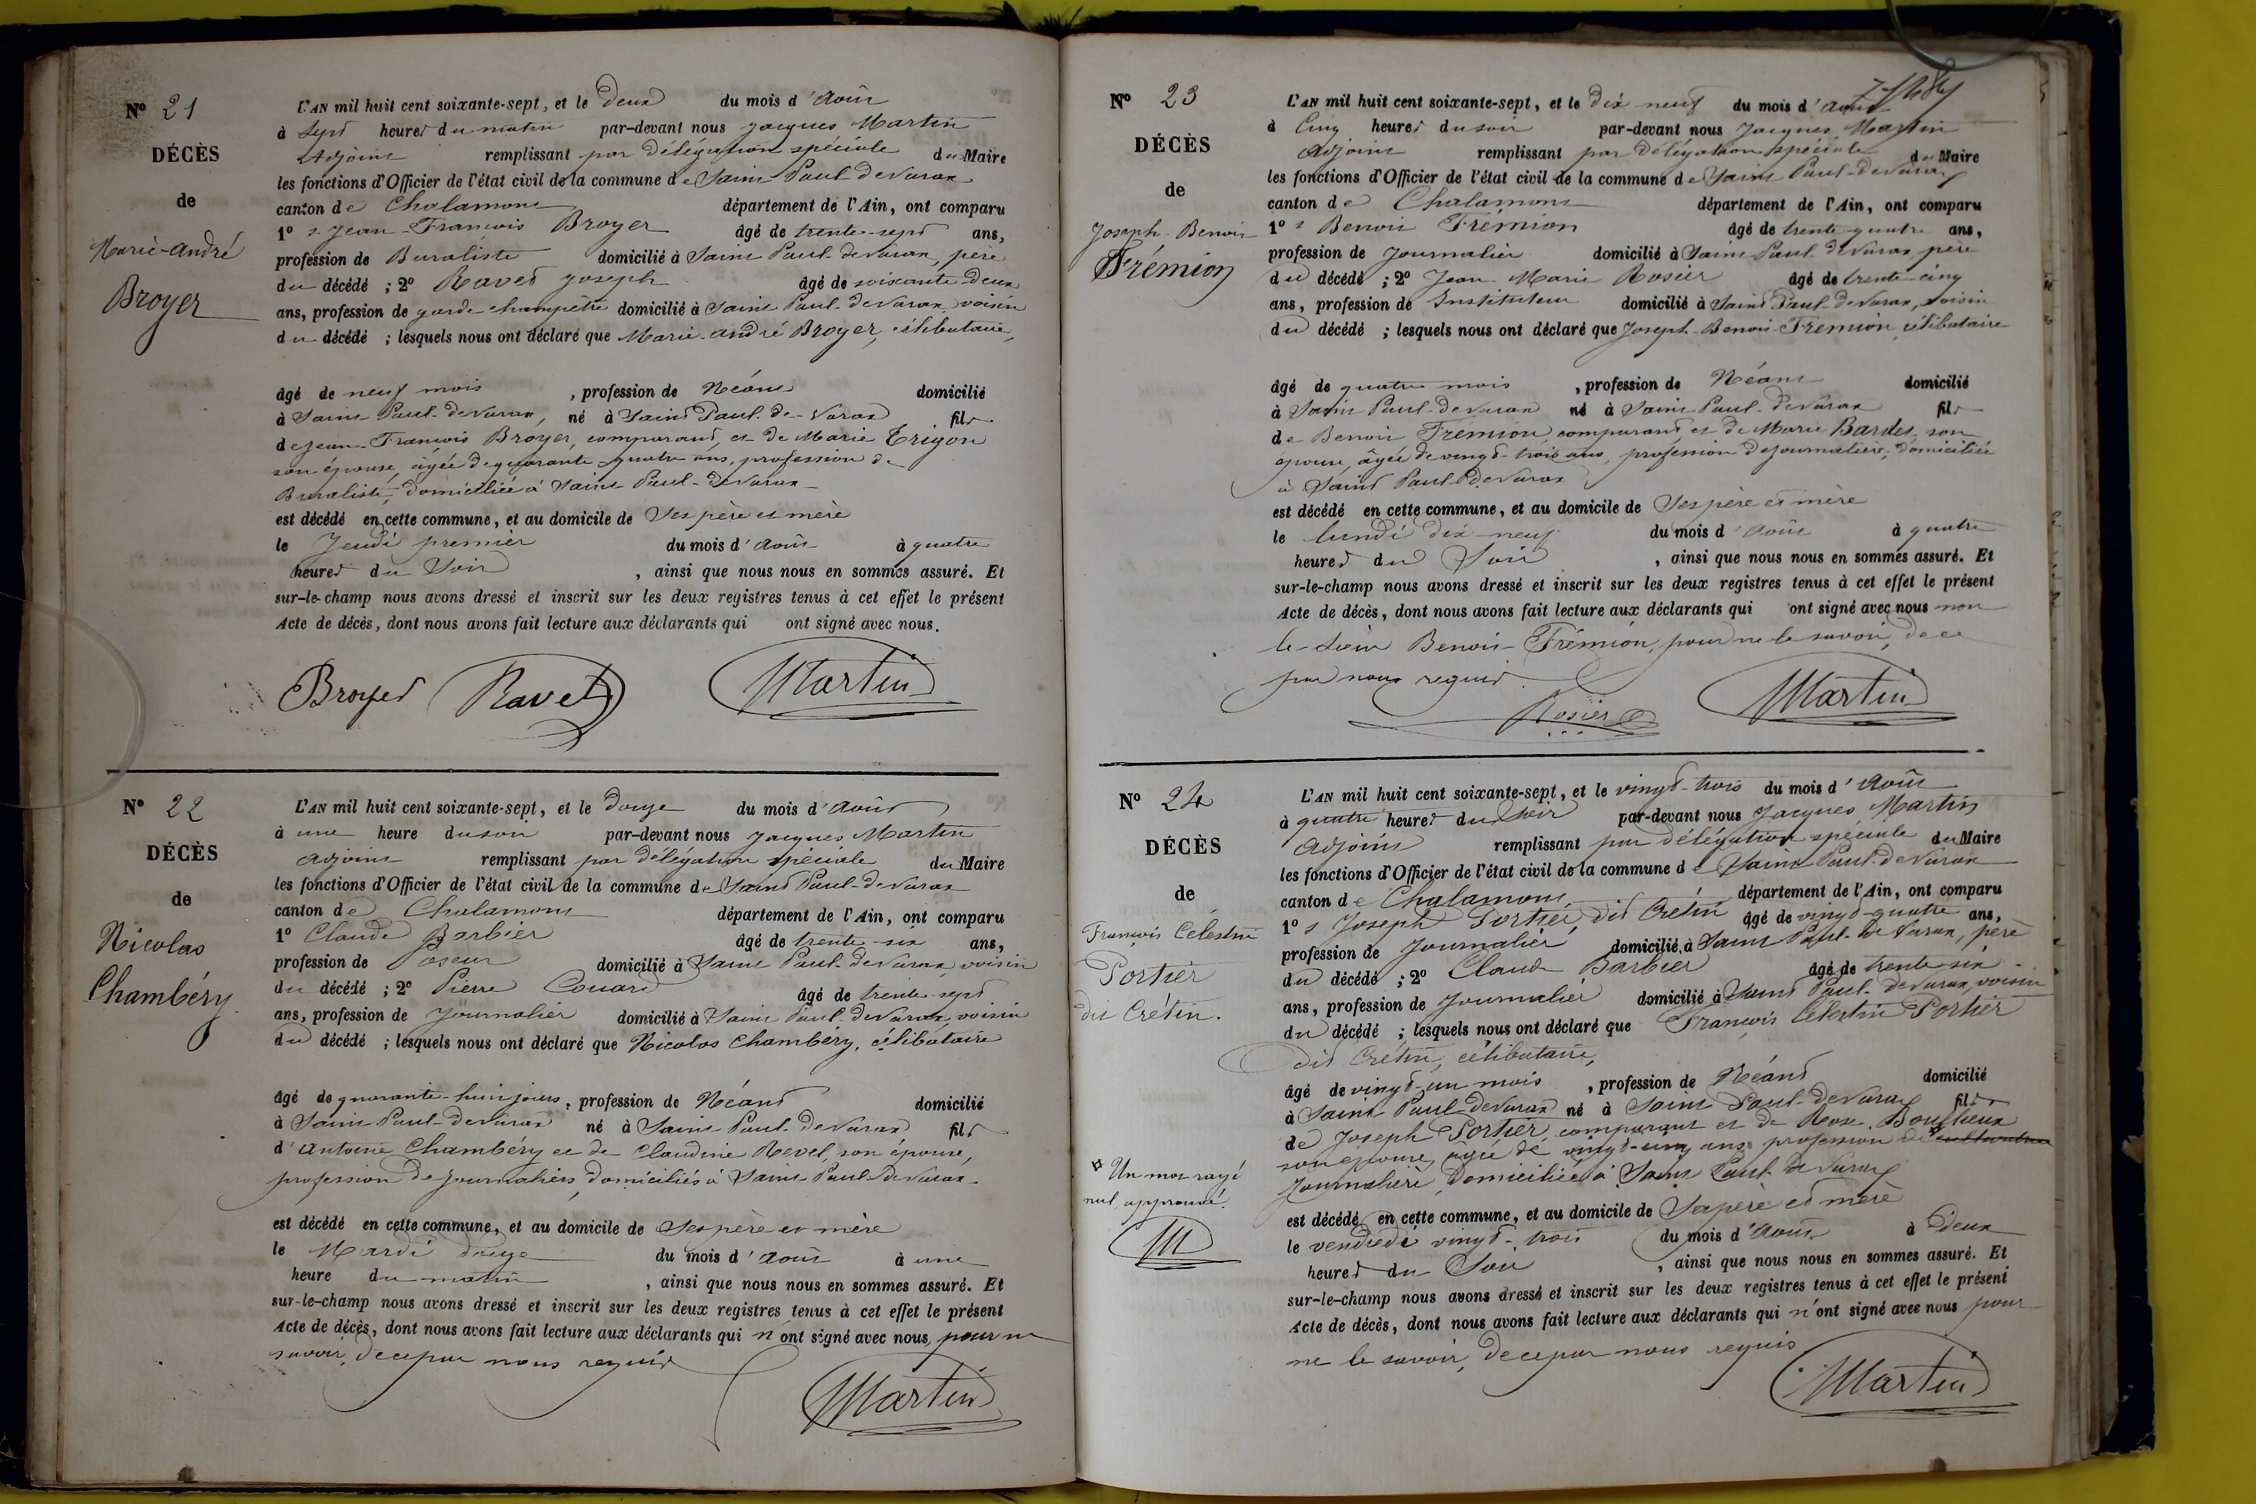 N° 21
DÉCÈS
de
Marie-André
Broyer
L'AN mil huit cent soixante-sept, et le deux du mois d'Août
à sept heures du matin par-devant nous Jacques Martin
Adjoint remplissant par délégation spéciale du Maire
les fonctions d'Officier de l'état civil de la commune de Saint Paul-de Varax
canton de Chalamont département de l'Ain, ont comparu
1° s. Jean-François Broyer âgé de trente-sept ans,
profession de Buraliste domicilié à Saint Paul-de Varax, père
du décédé ; 2° Ravet Joseph âgé de soixante-deux
ans, profession de garde-champêtre domicilié à Saint Paul-de Varax, voisin
du décédé ; lesquels nous ont déclaré que Marie-André Broyer, célibataire,
âgé de neuf mois , profession de Néant domicilié
à Saint Paul-de Varax, né à Saint Paul-de-Varax fils
de Jean-François Broyer, comparant, et de Marie Trigon
son épouse, âgée de quarante-quatre ans, profession de
Buraliste, domiciliée à Saint Paul-de Varax
est décédé en cette commune, et au domicile de Ses père et mère
le Jeudi premier du mois d'Août à quatre
heures du Soir , ainsi que nous nous en sommes assuré. Et
sur-le-champ nous avons dressé et inscrit sur les deux registres tenus à cet effet le présent
Acte de décès, dont nous avons fait lecture aux déclarants qui ont signé avec nous.
Broyer Ravet Martin
N° 22
DÉCÈS
de
Nicolas
Chambéry
L'AN mil huit cent soixante-sept, et le douze du mois d'Août
à une heure du soir par-devant nous Jacques Martin
Adjoint remplissant par délégation spéciale du Maire
les fonctions d'Officier de l'état civil de la commune de Saint Paul-de Varax
canton de Chalamont département de l'Ain, ont comparu
1° Claude Barbier âgé de trente-six ans,
profession de Poseur domicilié à Saint Paul-de Varax, voisin
du décédé ; 2° Pierre Couard âgé de trente-sept
ans, profession de Journalier domicilié à Saint Paul-de Varax, voisin
du décédé ; lesquels nous ont déclaré que Nicolas Chambéry, célibataire
âgé de quarante-huit jours, profession de Néant domicilié
à Saint Paul-de Varax né à Saint-Paul-de Varax fils
d'Antoine Chambéry et de Claudine Revel, son épouse,
profession de journaliers, domiciliés à Saint-Paul-de Varax
est décédé en cette commune, et au domicile de Ses père et mère
le Mardi douze du mois d'Août à une
heure du matin , ainsi que nous nous en sommes assuré. Et
sur-le-champ nous avons dressé et inscrit sur les deux registres tenus à cet effet le présent
Acte de décès, dont nous avons fait lecture aux déclarants qui n'ont signé avec nous pour ne
savoir, de ce par nous requis
Martin
N° 23
DÉCÈS
de
Joseph-Benoit
Frémion
L'AN mil huit cent soixante-sept, et le dix neuf du mois d'Août
à Cinq heures du soir par-devant nous Jacques Martin
Adjoint remplissant par délégation spéciale du Maire
les fonctions d'Officier de l'état civil de la commune de Saint Paul-de Varax
canton de Chalamont département de l'Ain, ont comparu
1° s Benoit Frémion âgé de trente-quatre ans,
profession de Journalier domicilié à Saint-Paul de Varax père
du décédé ; 2° Jean-Marie Rosier âgé de trente-cinq
ans, profession de Instituteur domicilié à Saint Paul-de Varax, voisin
du décédé ; lesquels nous ont déclaré que Joseph-Benoit Frémion, célibataire
âgé de quatre mois , profession de Néant domicilié
à Saint Paul-de Varax né à Saint-Paul-de Varax fils
de Benoit Frémion, comparant et de Marie Bardet, son
épouse, âgée de vingt-trois ans, profession de journalière, domiciliée
à Saint Paul-de Varax
est décédé en cette commune, et au domicile de Ses père et mère
le lundi dix-neuf du mois d'Août à quatre
heures du Soir , ainsi que nous nous en sommes assuré. Et
sur-le-champ nous avons dressé et inscrit sur les deux registres tenus à cet effet le présent
Acte de décès, dont nous avons fait lecture aux déclarants qui ont signé avec nous non
le sieur Benoit Frémion, pour ne le savoir, de ce
par nous requis.
Rosier Martin
N° 24
DÉCÈS
de
François Célestin
Portier
dit Crétin.
L'AN mil huit cent soixante-sept, et le vingt-trois du mois d'Août
à quatre heures du Soir par-devant nous Jacques Martin
Adjoint remplissant par délégation spéciale du Maire
les fonctions d'Officier de l'état civil de la commune de Saint Paul-de Varax
canton de Chalamont département de l'Ain, ont comparu
1° s Joseph Portier, dit Crétin âgé de vingt-quatre ans,
profession de Journalier domicilié à Saint Paul-de Varax, père
du décédé ; 2° Claude Barbier âgé de trente-six
ans, profession de Journalier domicilié à Saint Paul-de Varax, voisin
du décédé ; lesquels nous ont déclaré que François Célestin Portier
dit Crétin, célibataire,
âgé de vingt-un mois , profession de Néant domicilié
à Saint Paul-de Varax né à Saint Paul-de Varax fils
de Joseph Portier, comparant et de Rose Bouflieux
son épouse, âgée de vingt-cinq ans, profession de
Journalière, domiciliée à Saint Paul de Varax
est décédé en cette commune, et au domicile de Ses père et mère
le vendredi vingt-trois du mois d'Août à Deux
heures du Soir , ainsi que nous nous en sommes assuré. Et
sur-le-champ nous avons dressé et inscrit sur les deux registres tenus à cet effet le présent
Acte de décès, dont nous avons fait lecture aux déclarants qui n'ont signé avec nous pour
ne le savoir, de ce par nous requis
Martin
Un mot rayé
nul, approuvé.
M